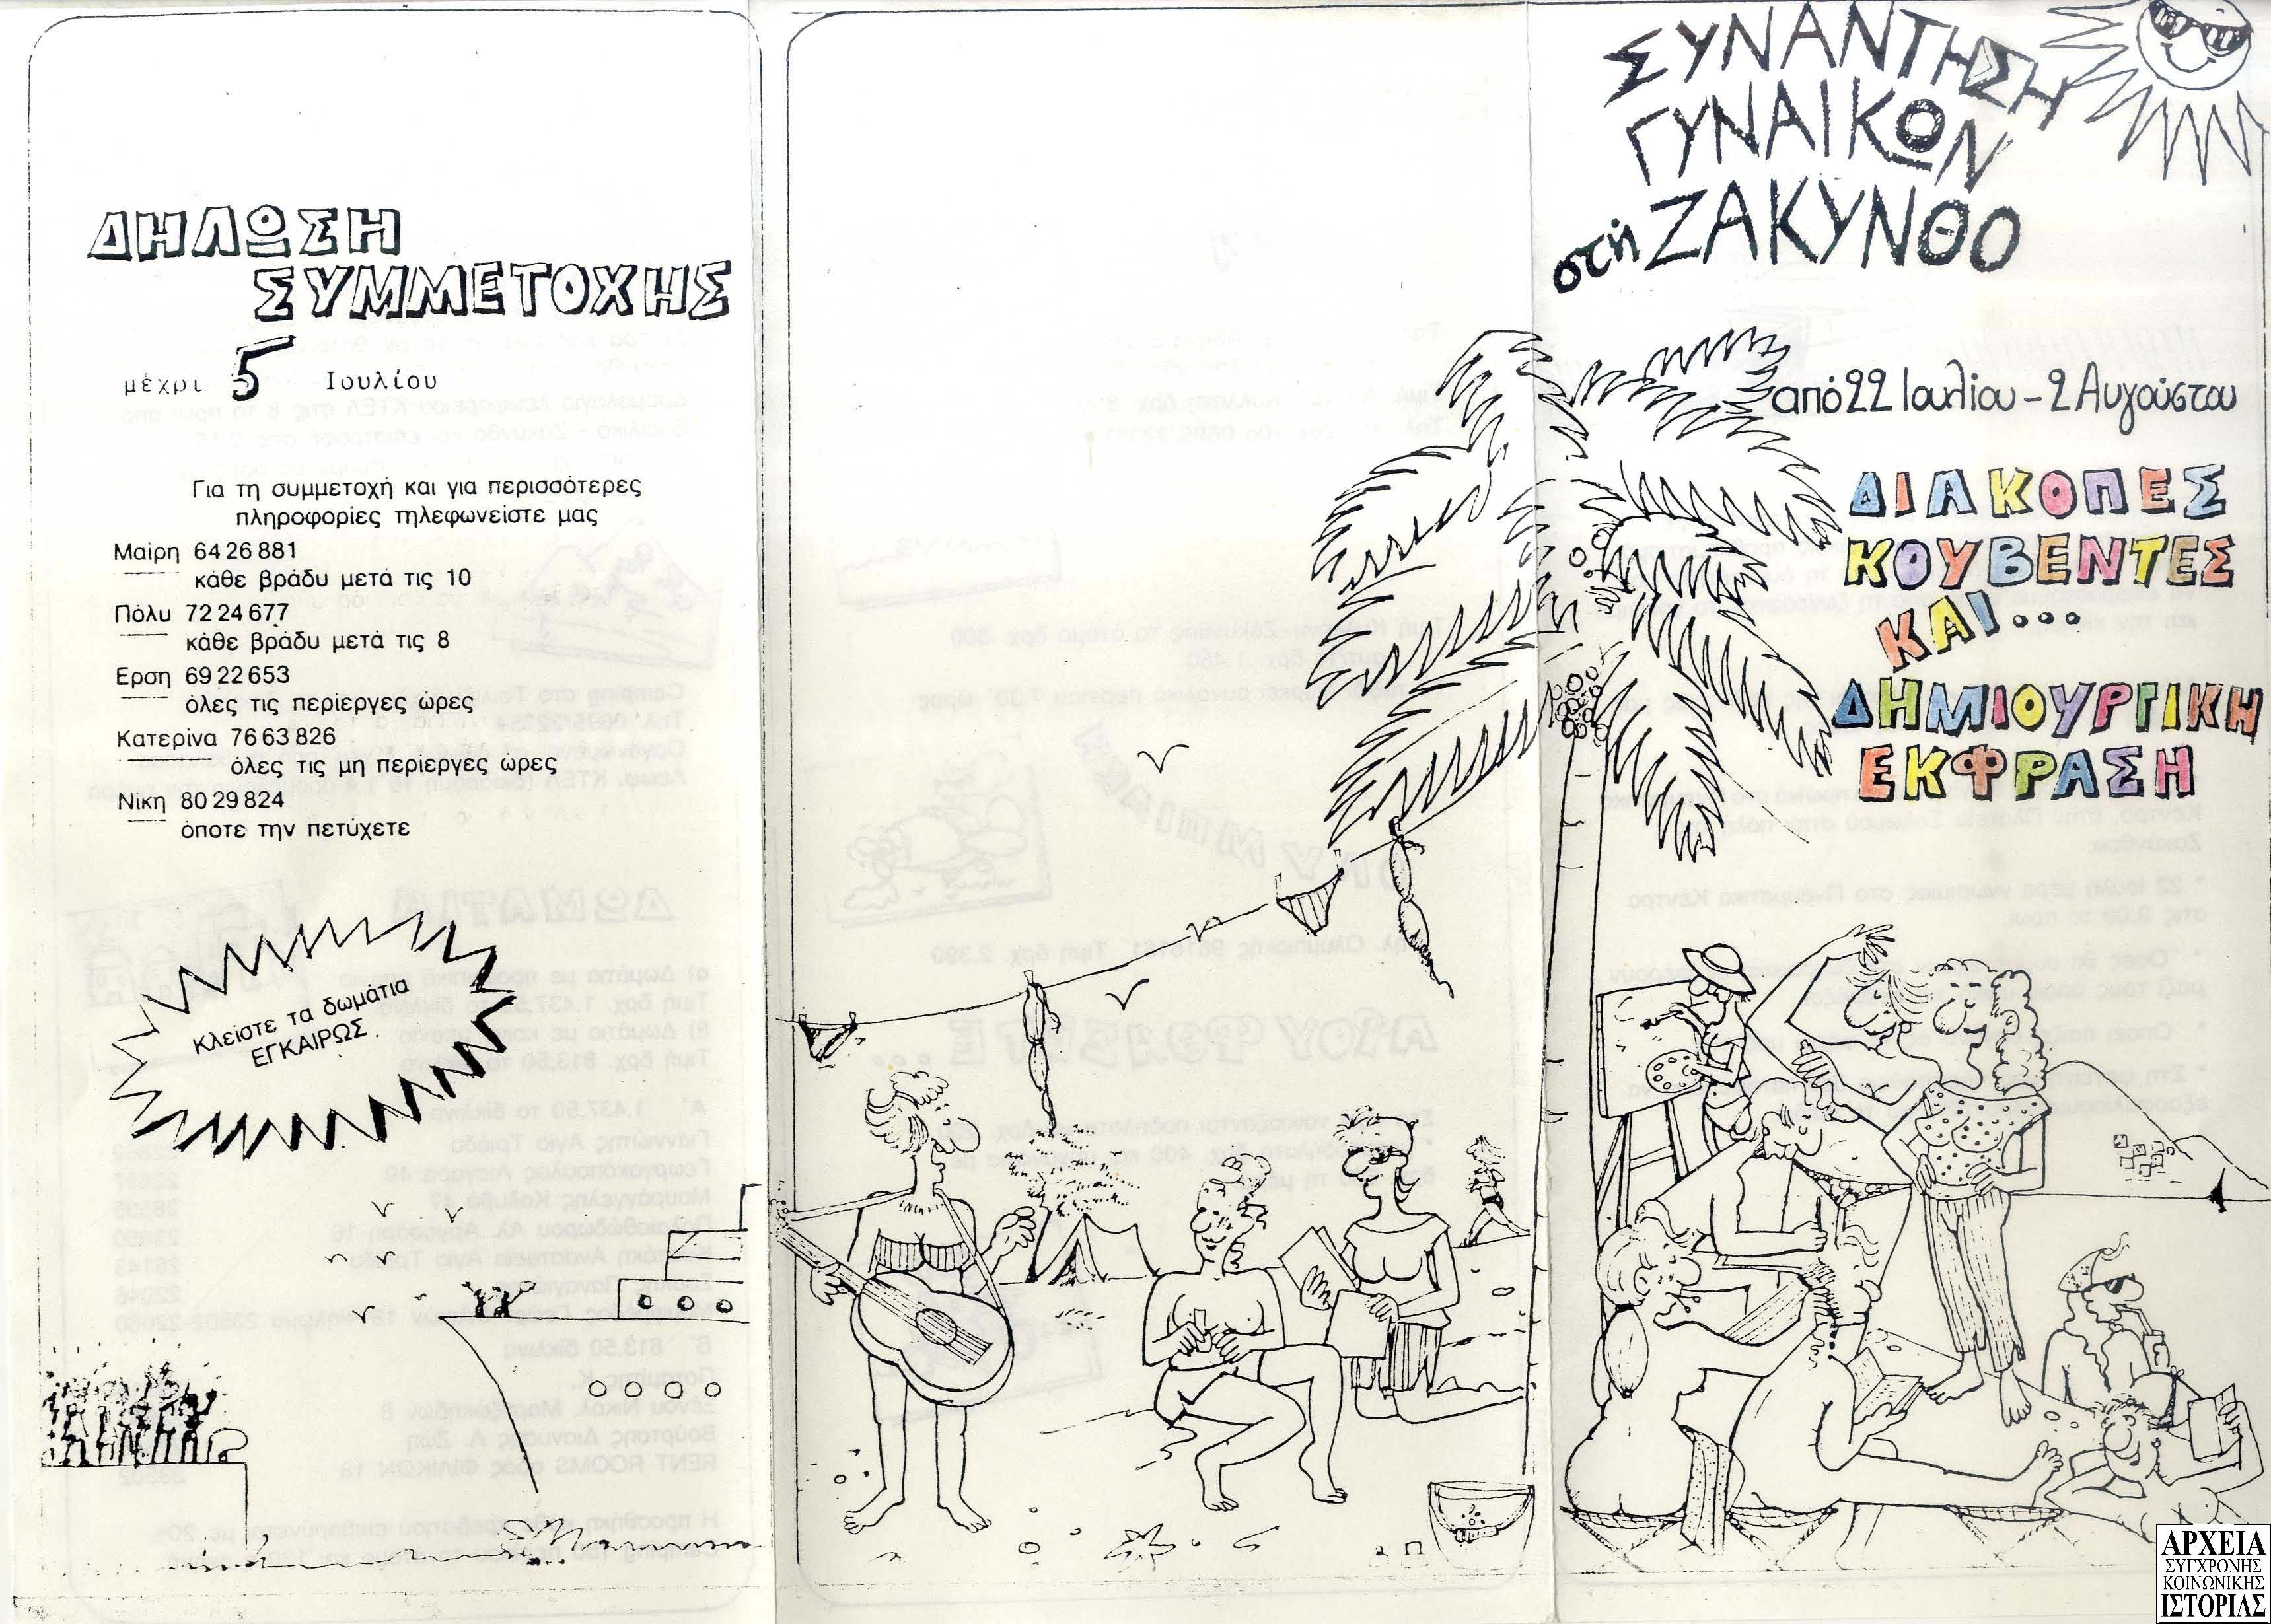 ΔΗΛΩΣΗ
ΣΥΜΜΕΤΟΧΗΣ
μέχρι 5 Ιουλίου
Για τη συμμετοχή και για περισσότερες
πληροφορίες τηλεφωνείστε μας
Μαίρη 64 26 881
κάθε βράδυ μετά τις 10
Πόλυ 72 24 677
κάθε βράδυ μετά τις 8
Ερση 69 22 653
όλες τις περίεργες ώρες
Κατερίνα 76 63 826
όλες τις μη περίεργες ώρες
Νίκη 80 29 824
όποτε την πετύχετε
Κλείστε τα δωμάτια
ΕΓΚΑΙΡΩΣ.
ΣΥΝΑΝΤΗΣΗ
ΓΥΝΑΙΚΩΝ
στή ΖΑΚΥΝΘΟ
από 22 Ιουλίου - 2 Αυγούστου
ΔΙΑΚΟΠΕΣ
ΚΟΥΒΕΝΤΕΣ
ΚΑΙ...
ΔΗΜΙΟΥΡΓΙΚΗ
ΕΚΦΡΑΣΗ
ΑΡΧΕΙΑ
ΣΥΓΧΡΟΝΗΣ
ΚΟΙΝΩΝΙΚΗΣ
ΙΣΤΟΡΙΑΣ